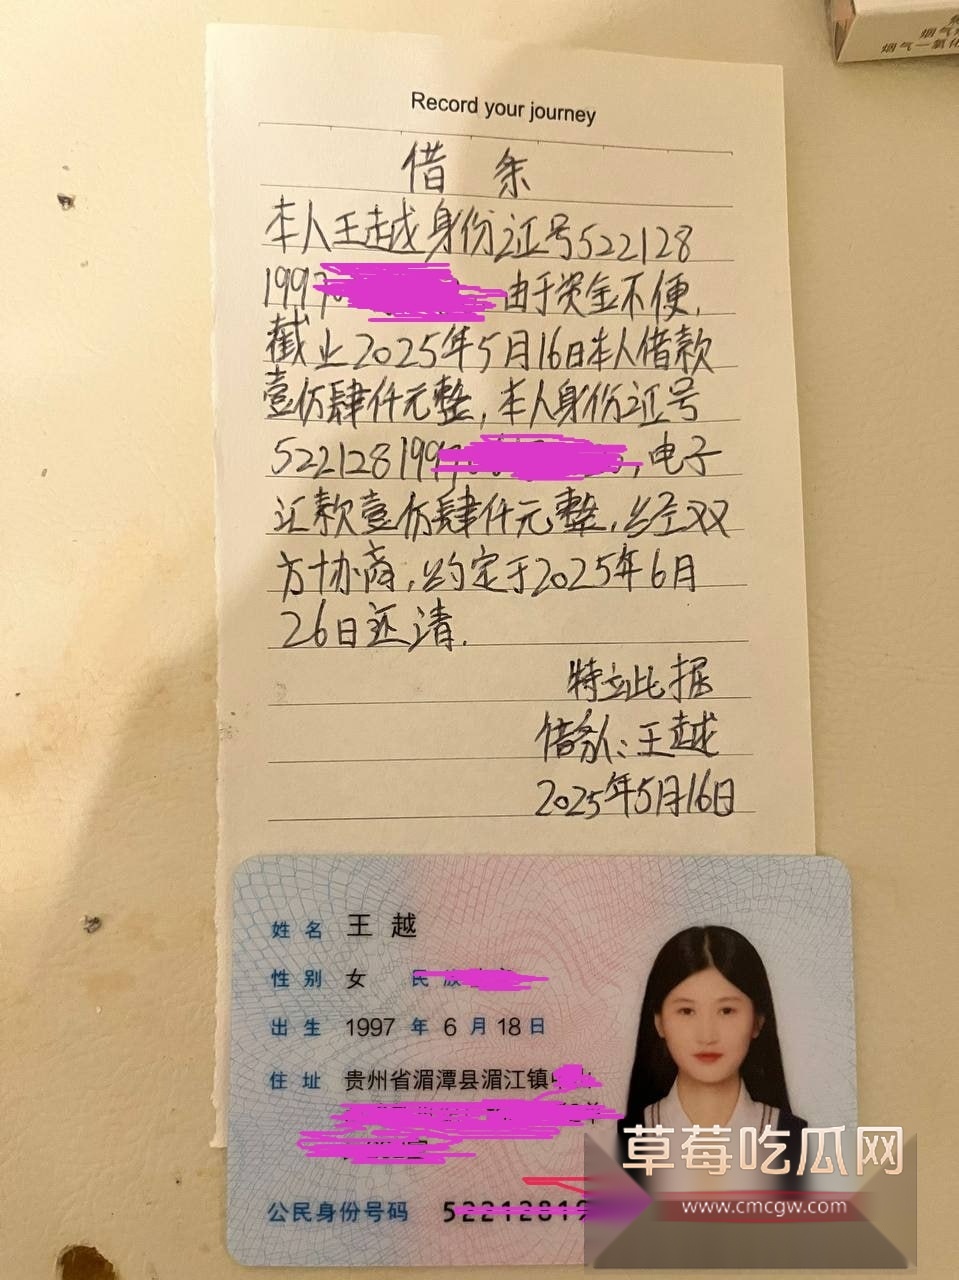 烟气
烟气一氧化
Record your journey
借 条
本人王越身份证号522128
199 由于资金不便,
截止2025年5月16日本人借款
壹仟肆仟元整,本人身份证号
522128199 ,电子
汇款壹仟肆仟元整,经双
方协商,约定于2025年6月
26日还清.
特立此据
借款人:王越
2025年5月16日
姓名 王越
性别 女 民族
出生 1997年6月18日
住址 贵州省湄潭县湄江镇
公民身份号码
草莓吃瓜网
www.cmcgw.com